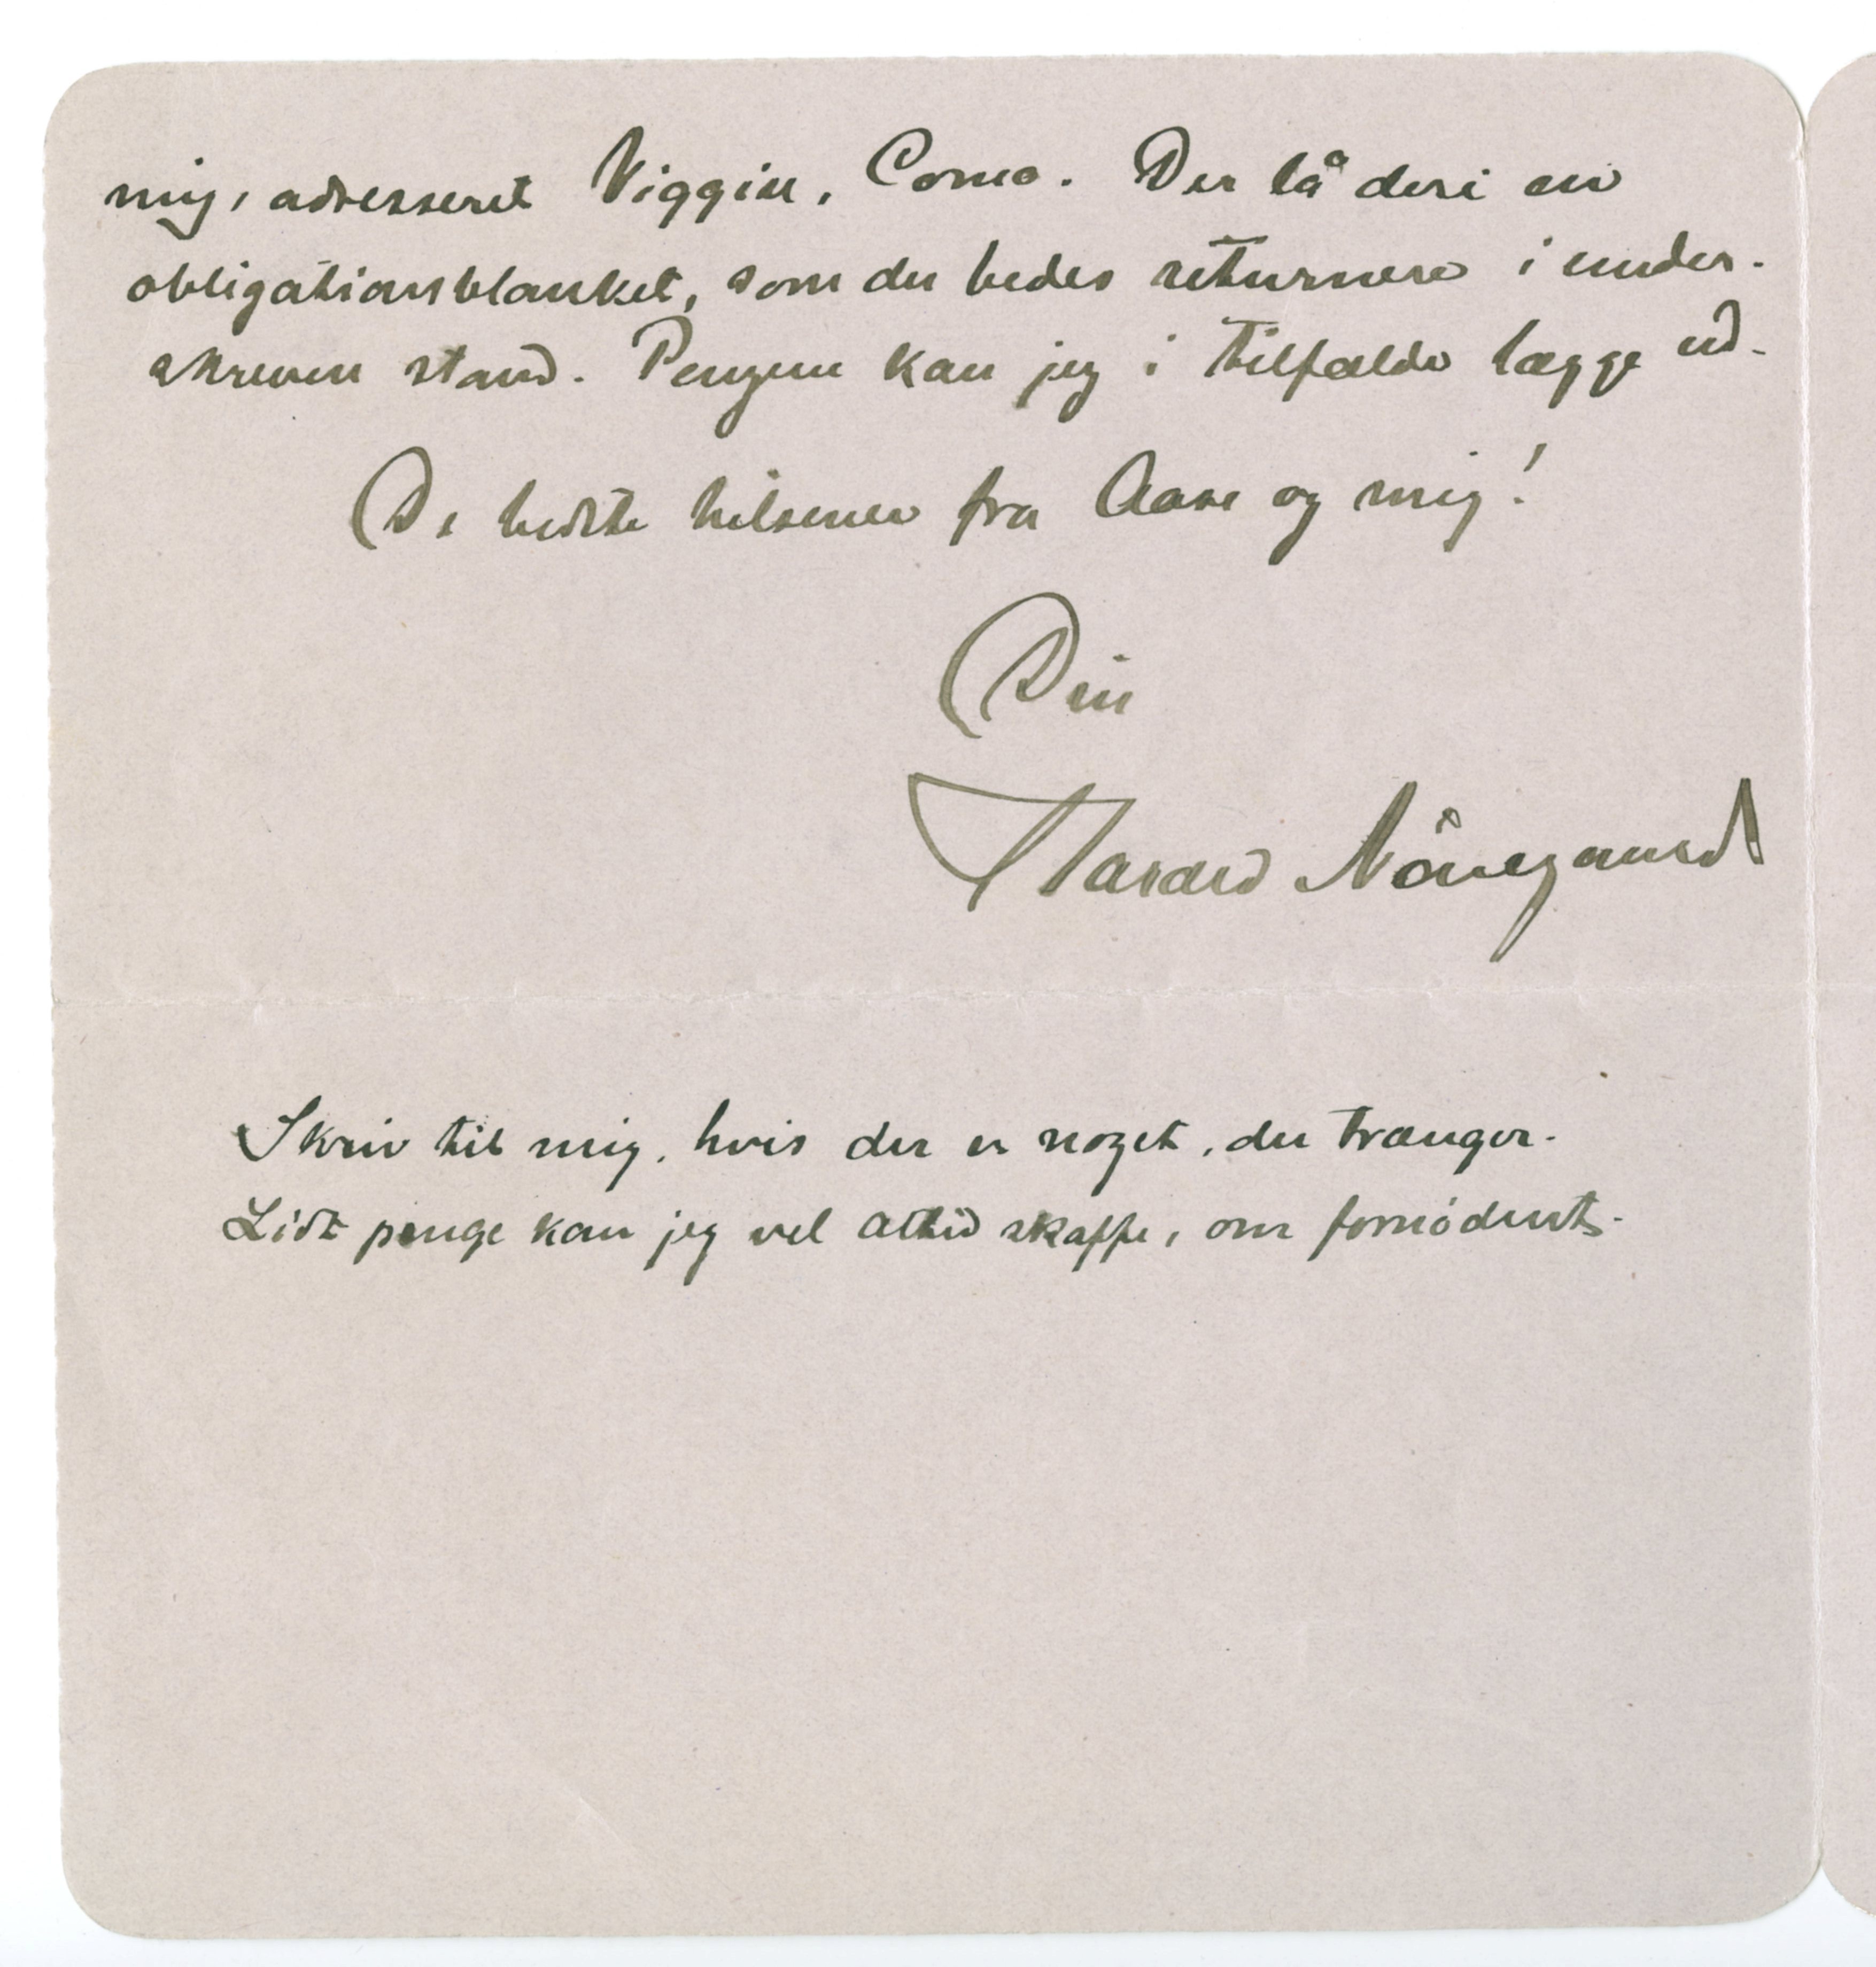 mig, adresseret Viggiu, Como. Der lå deri en
obligationsblanket, som du bedes returnere i under-
skreven stand. Pengene kan jeg i tilfælde lægge ud.
De bedste hilsener fra Aase og mig!
Din
Harald
Skriv til mig, hvis der er noget, du trænger.
Lidt penge kan jeg vel altid skaffe, om fornødent.